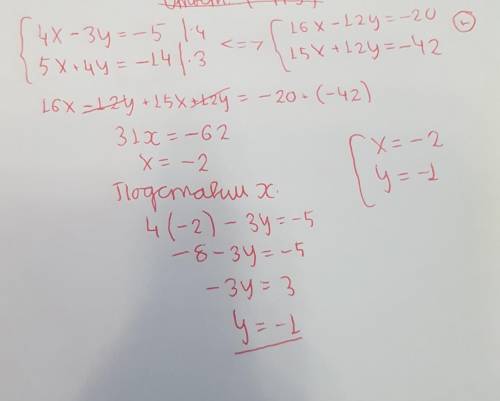 { 4x - 3y = -5 | ·4
{ 5x + 4y = -14 | ·3
<=> { 16x - 12y = -20
{ 15x + 12y = -42
16x - 12y + 15x + 12y = -20 + (-42)
31x = -62
x = -2
Подставим x.
4(-2) - 3y = -5
-8 - 3y = -5
-3y = 3
y = -1
{ x = -2
{ y = -1